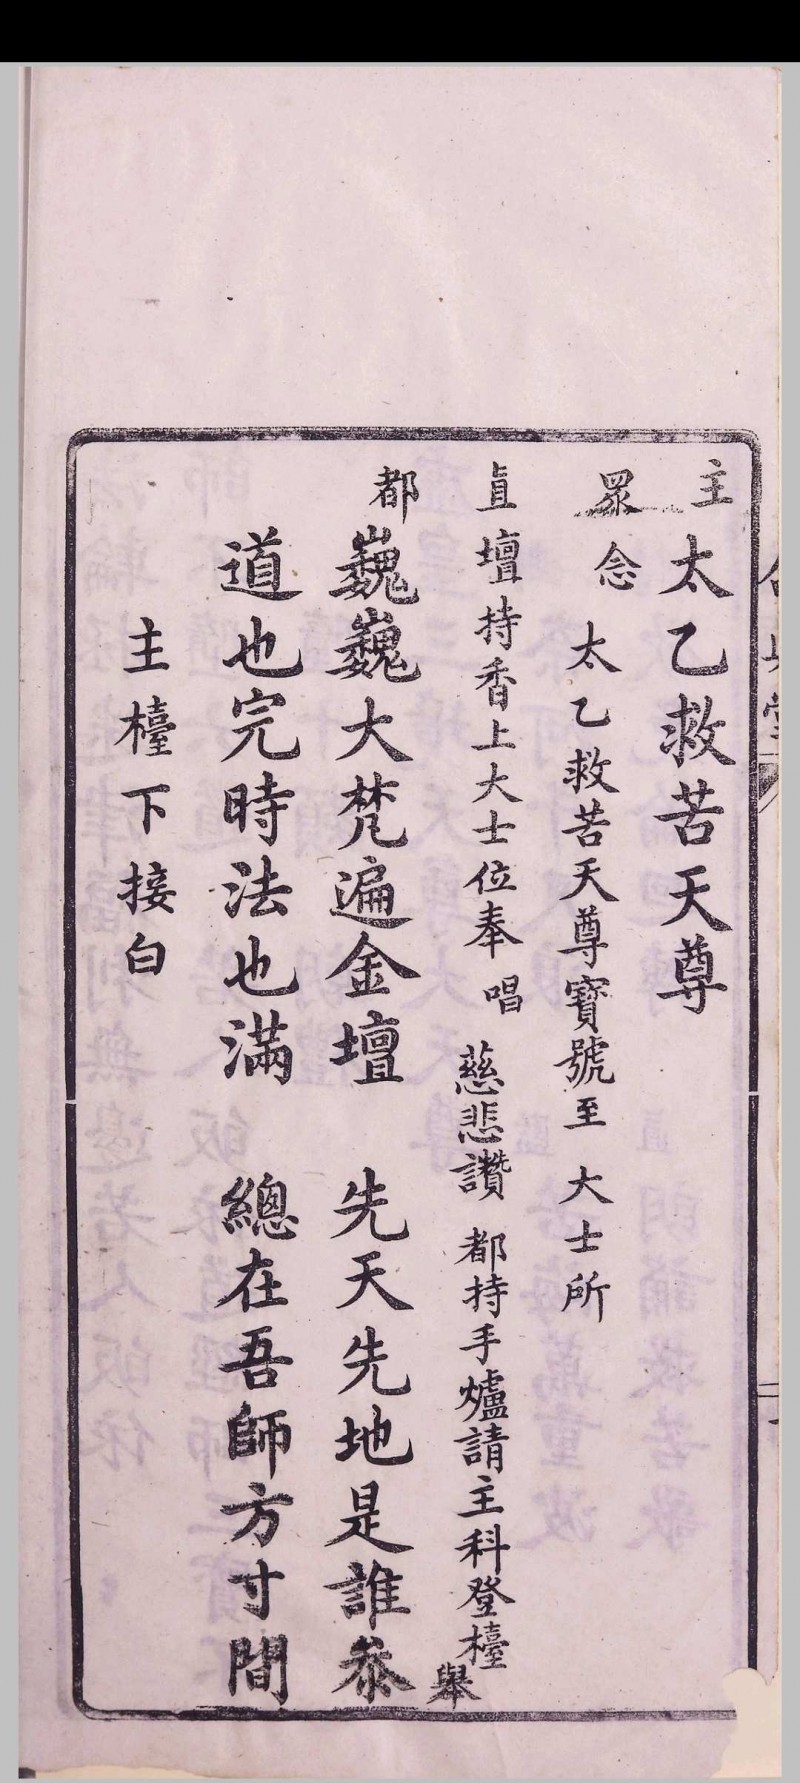 主 太乙救苦天尊
眾念 太乙救苦天尊寶號至 大士所
直壇持香上大士位奉唱 慈悲讚 都持手爐請主科登檯 舉
都 巍巍大梵遍金壇 先天先地是誰叅
道也完時法也滿 總在吾師方寸間
主檯下接白